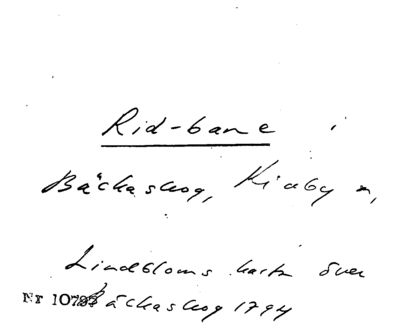 Rid-bane i
Bäckaskog, Kiaby n,
Lindbloms karta över
Nr 10787 Bäckaskog 1794